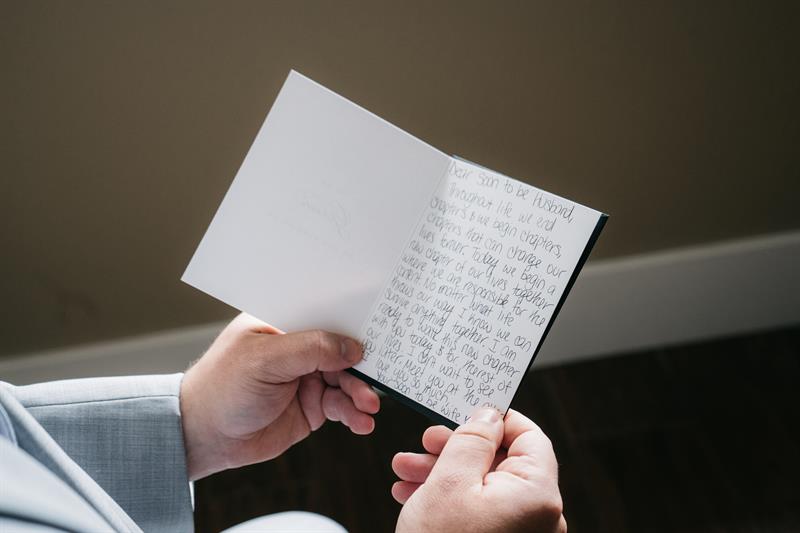 Dear soon to be Husband,
Throughout life we end
chapters & we begin chapters,
chapters that can change our
lives forever. Today we begin a
new chapter of our lives together
where we are responsible for the
content. No matter what life
throws our way I know we can
survive anything together. I am
ready to start this new chapter
with you today & for the rest of
our lives. I can't wait to see
you later. Meet you at the
you so much,
Your soon to be Wife